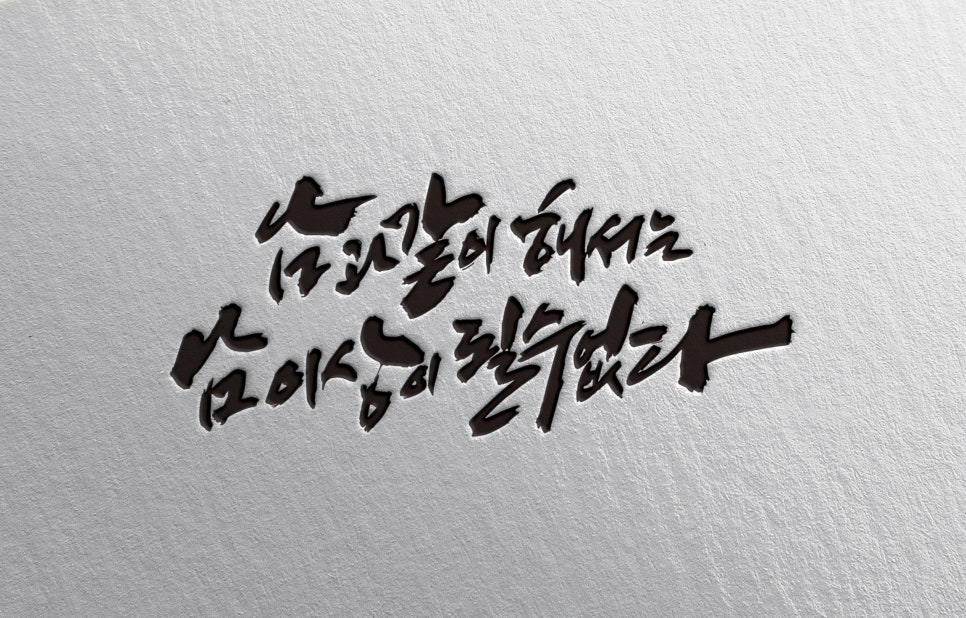 남과 같이 해서는
남 이상이 될 수 없다